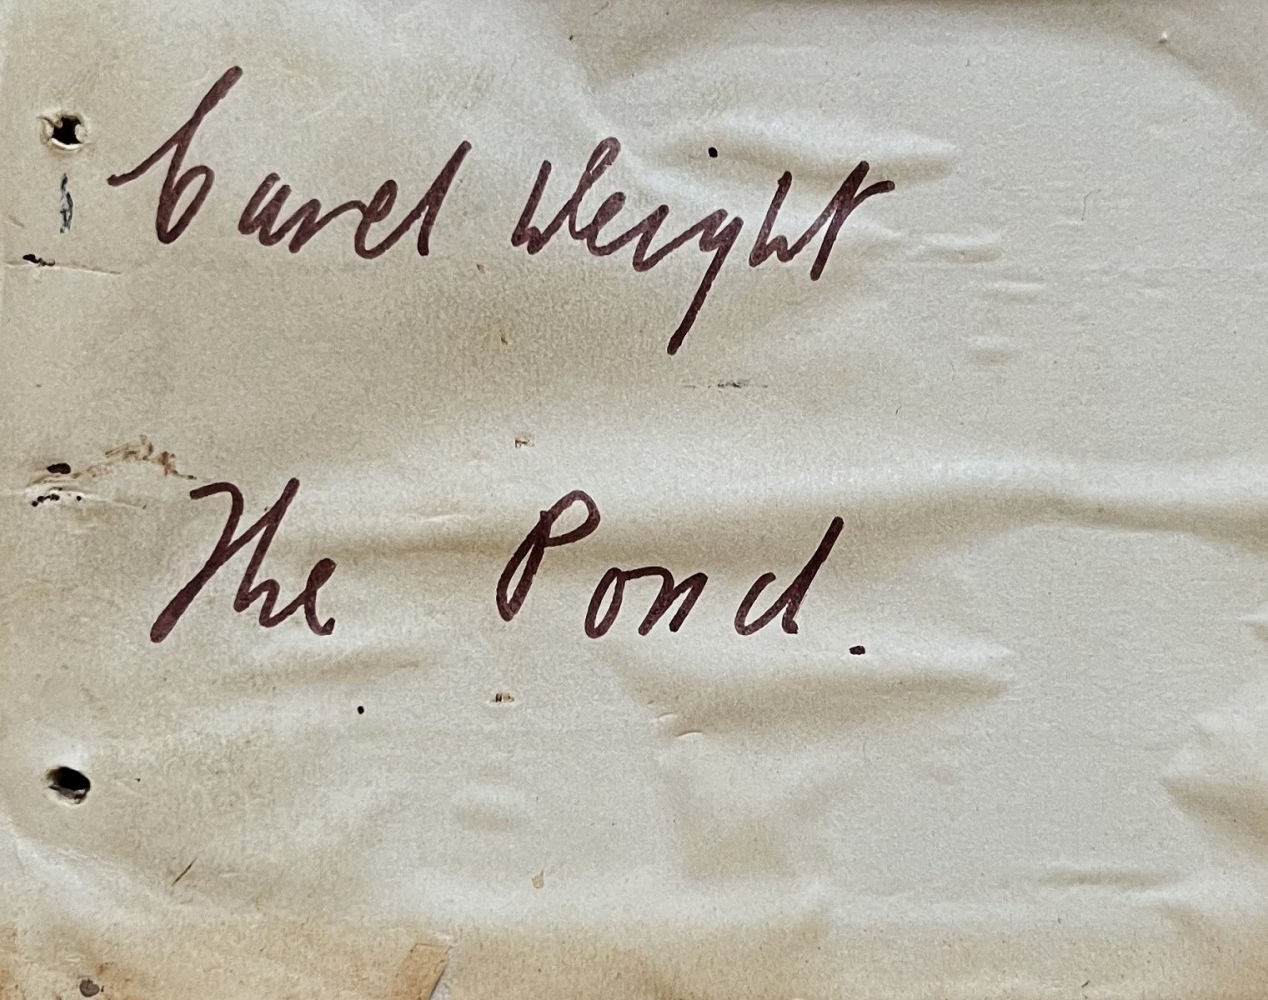 Carel Weight
The Pond.